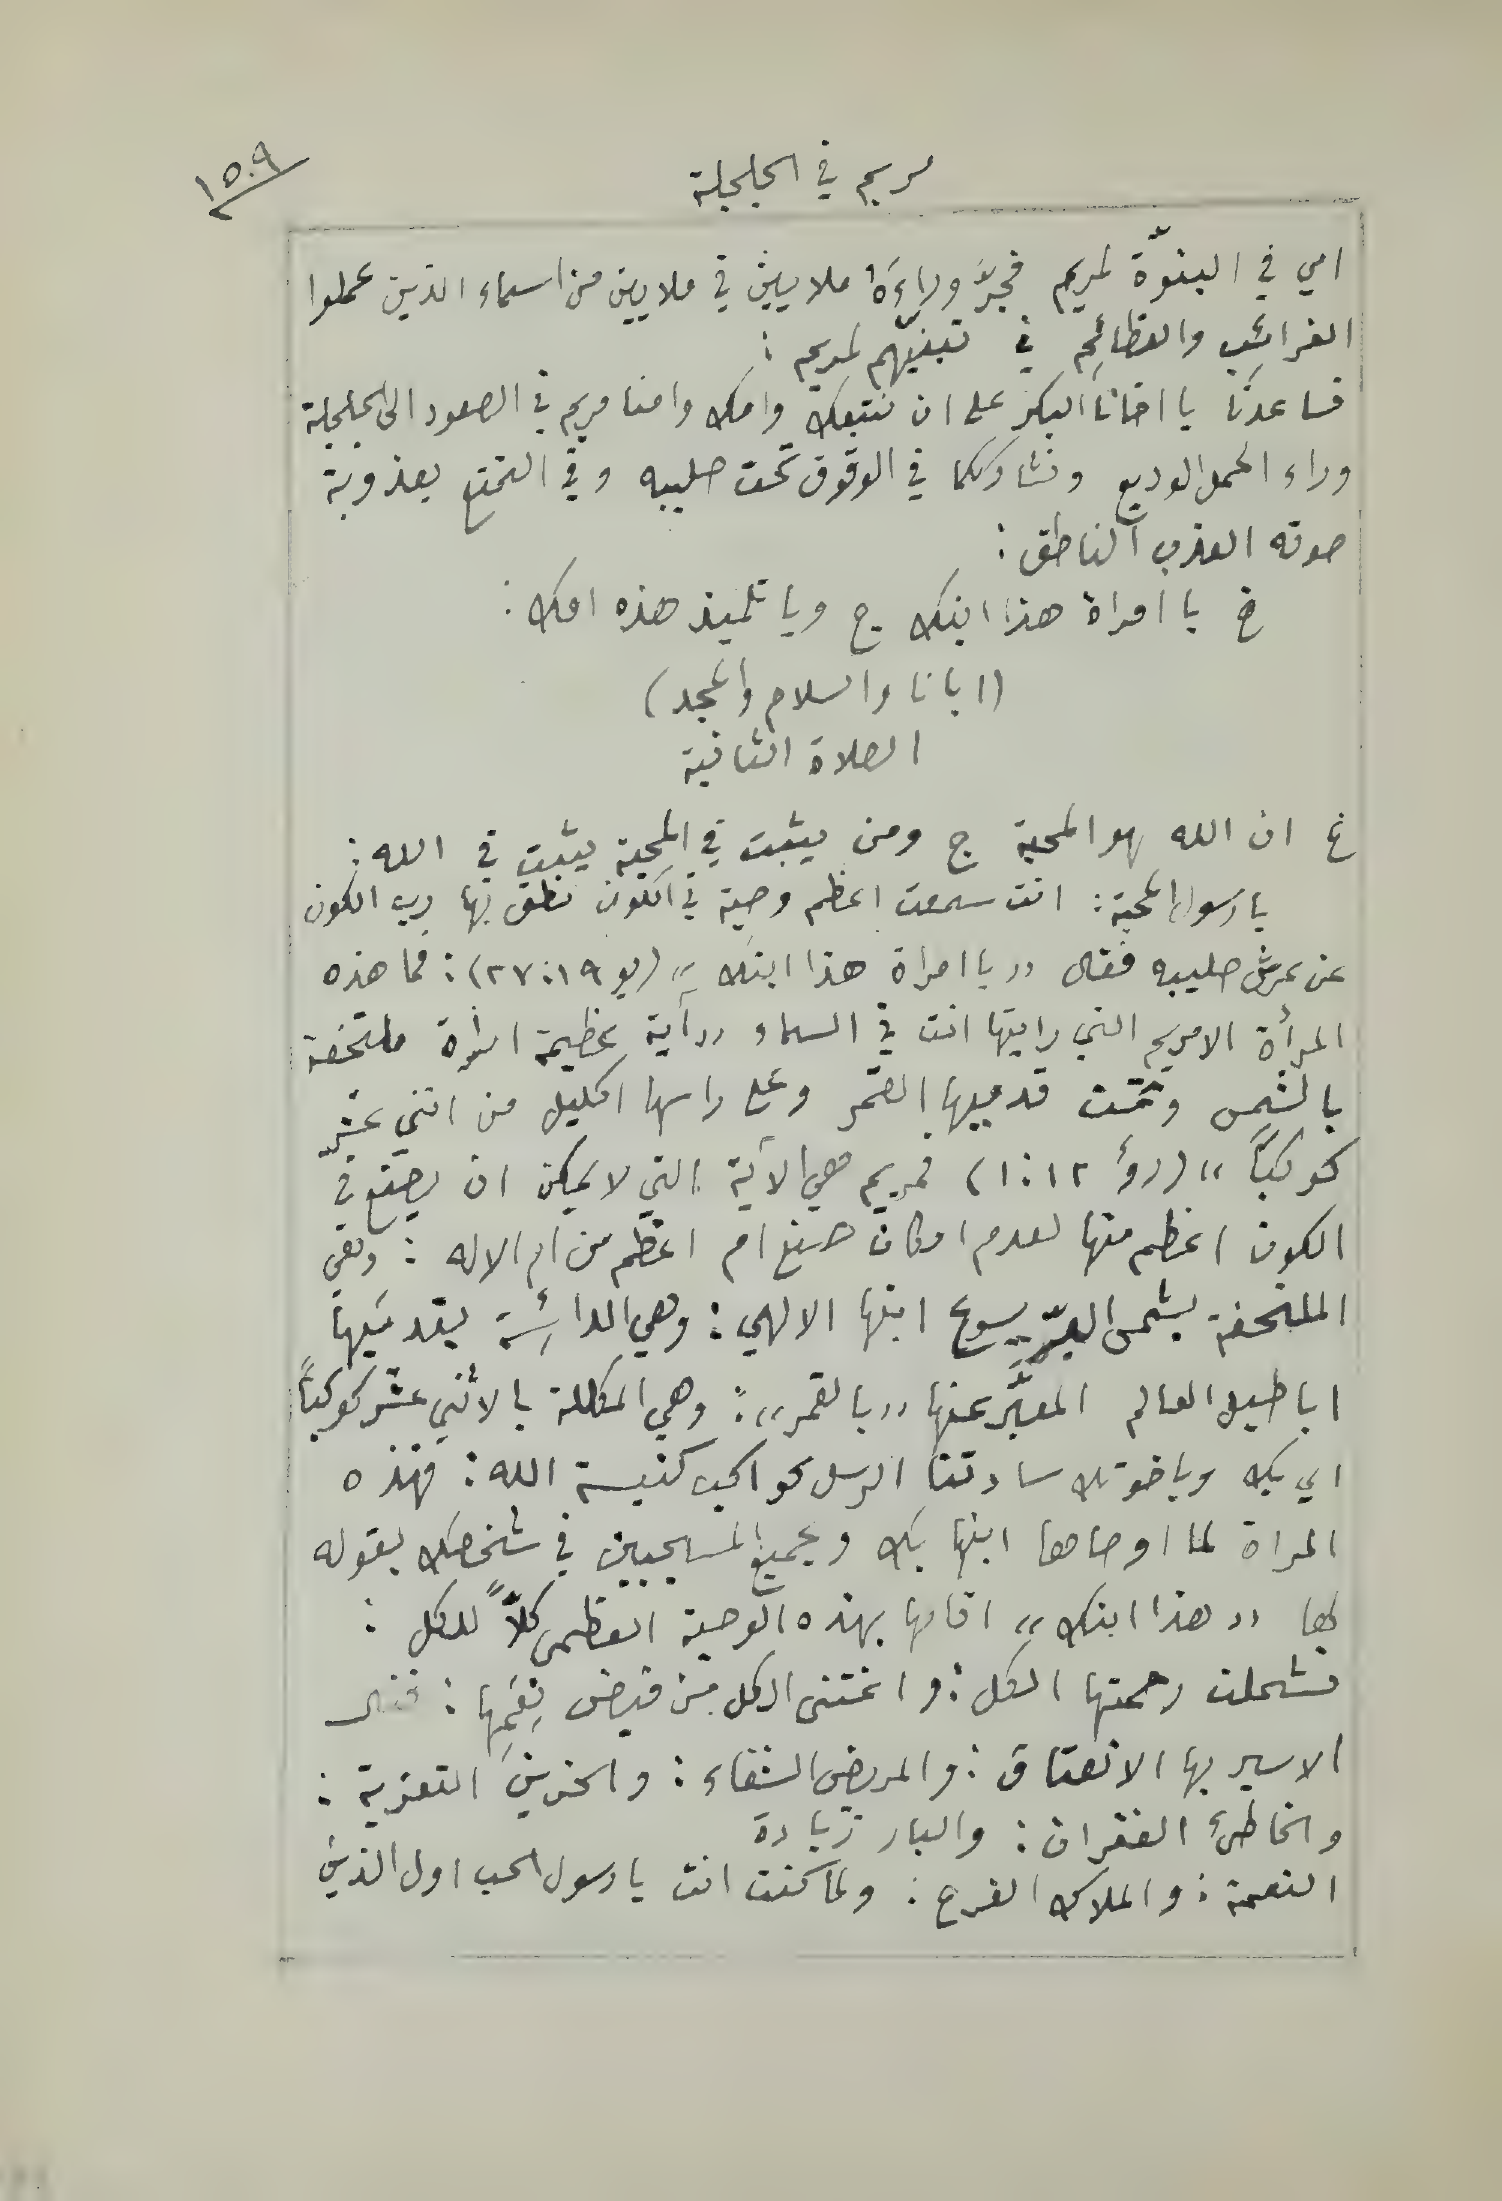 ١٥٠٩
مريم في الجلجلة
امي في البنوّة لمريم فجرَّ وراءَهُ ملايين في ملايين من اسماء الذين عملوا
الغرائب والعظائم في تبنيّهم لمريم :
فساعدنا يا اخانا البكر على ان نتبعك وامك وامنا مريم في الصعود الى الجلجلة
وراء الحمل الوديع ونشارككما في الوقوف تحت صليبه وفي التمتع بعذوبة
صوته العذب الناطق :
خ يا امراة هذا ابنك ج ويا تلميذ هذه امك :
(ابانا والسلام والمجد)
الصلاة الثانية
خ ان الله هو المحبة ج ومن يثبت في المحبة يثبت في الله :
يا رسول المحبة : انت سمعت اعظم وصية في الكون نطق بها رب الكون
عن عرش صليبه فقال ,, يا امراة هذا ابنك ,, (يو ١٩ : ٢٧) : فما هذه
المرأة الا مريم التي رايتها انت في السماء ,, آية عظيمة امرأة ملتحفة
بالشمس وتحت قدميها القمر وعلى راسها اكليل من اثني عشر
كوكبًا ,, (رؤ ١٢ : ١) فمريم هي الآية التي لا يمكن ان يصنع في
الكون اعظم منها لعدم امكان صنع ام اعظم من ام الاله : وهي
الملتحفة بشمس البرّ يسوع ابنها الالهي : وهي الدائسة بقدميها
اباطيل العالم المعبَّر عنها ,, بالقمر ,, : وهي المكللة بالاثني عشر كوكبًا
اي بك وباخوتك سادتنا الرسل كواكب كنيسة الله : فهذه
المراة لما اوصاها ابنها بك وبجميع المسيحيين في شخصك بقوله
لها ,, هذا ابنك ,, اقامها بهذه الوصية العظمى كلاًّ للكل :
فشملت رحمتها الكل : واغتنى الكل من فيض نِعَمِها : فنال
الاسير بها الانعتاق : والمريض الشفاء : والحزين التعزية :
والخاطئ الغفران : والبار زيادة
النعمة : والملاك الفرح : ولما كنت انت يا رسول الحب اول الذين